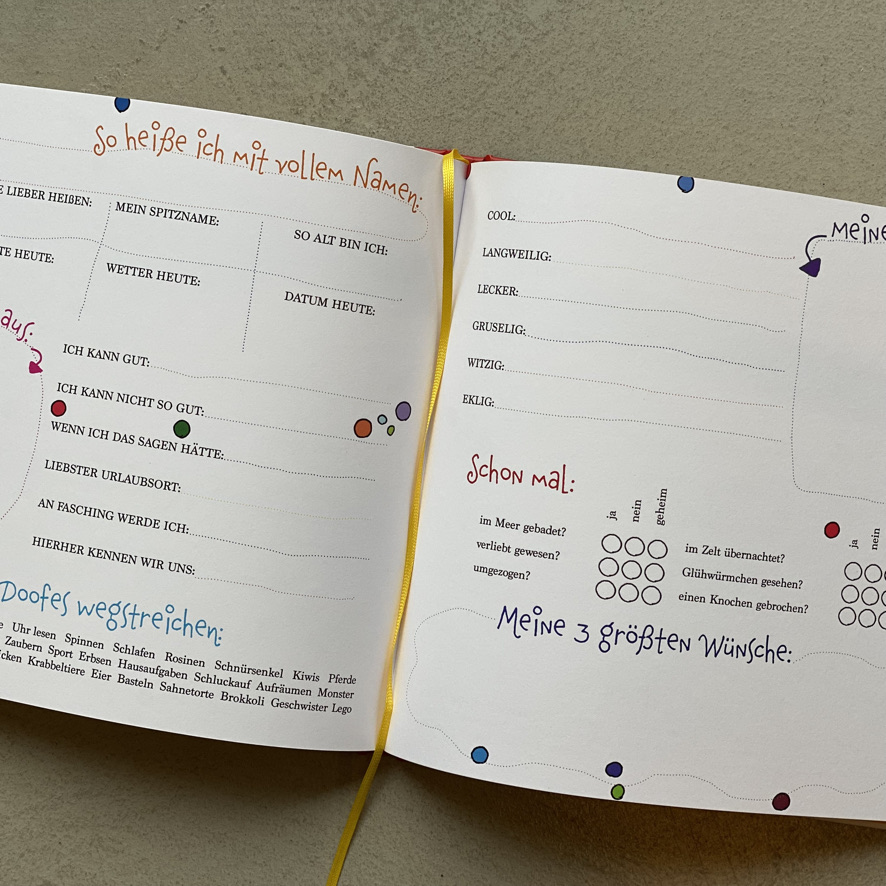 So heiße ich mit vollem Namen:
LIEBER HEIßEN:
MEIN SPITZNAME:
SO ALT BIN ICH:
HEUTE:
WETTER HEUTE:
DATUM HEUTE:
aus:
ICH KANN GUT:
ICH KANN NICHT SO GUT:
WENN ICH DAS SAGEN HÄTTE:
LIEBSTER URLAUBSORT:
AN FASCHING WERDE ICH:
HIERHER KENNEN WIR UNS:
Doofes wegstreichen:
Uhr lesen Spinnen Schlafen Rosinen Schnürsenkel Kiwis Pferde
Zaubern Sport Erbsen Hausaufgaben Schluckauf Aufräumen Monster
Krabbeltiere Eier Basteln Sahnetorte Brokkoli Geschwister Lego
COOL:
LANGWEILIG:
LECKER:
GRUSELIG:
WITZIG:
EKLIG:
MEINE
Schon mal:
ja nein geheim
im Meer gebadet?
verliebt gewesen?
umgezogen?
ja nein
im Zelt übernachtet?
Glühwürmchen gesehen?
einen Knochen gebrochen?
Meine 3 größten Wünsche: